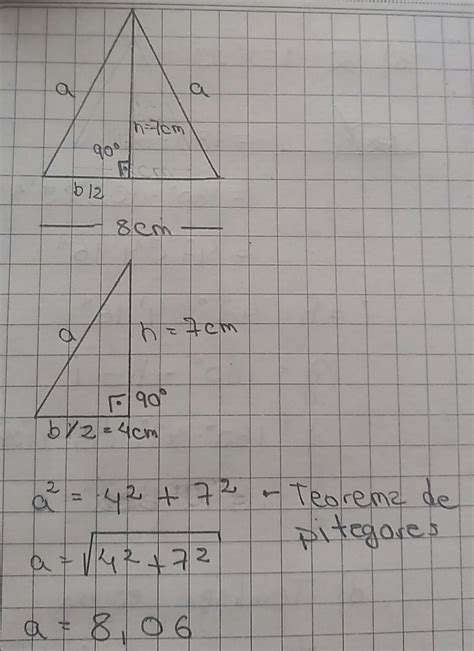 a
a
h=7cm
90°
cm
b/2
8cm
a
h = 7cm
90°
b/2 = 4cm
a² = 4² + 7² - Teorema de
pitegores
a = √4² + 7²
a = 8,06